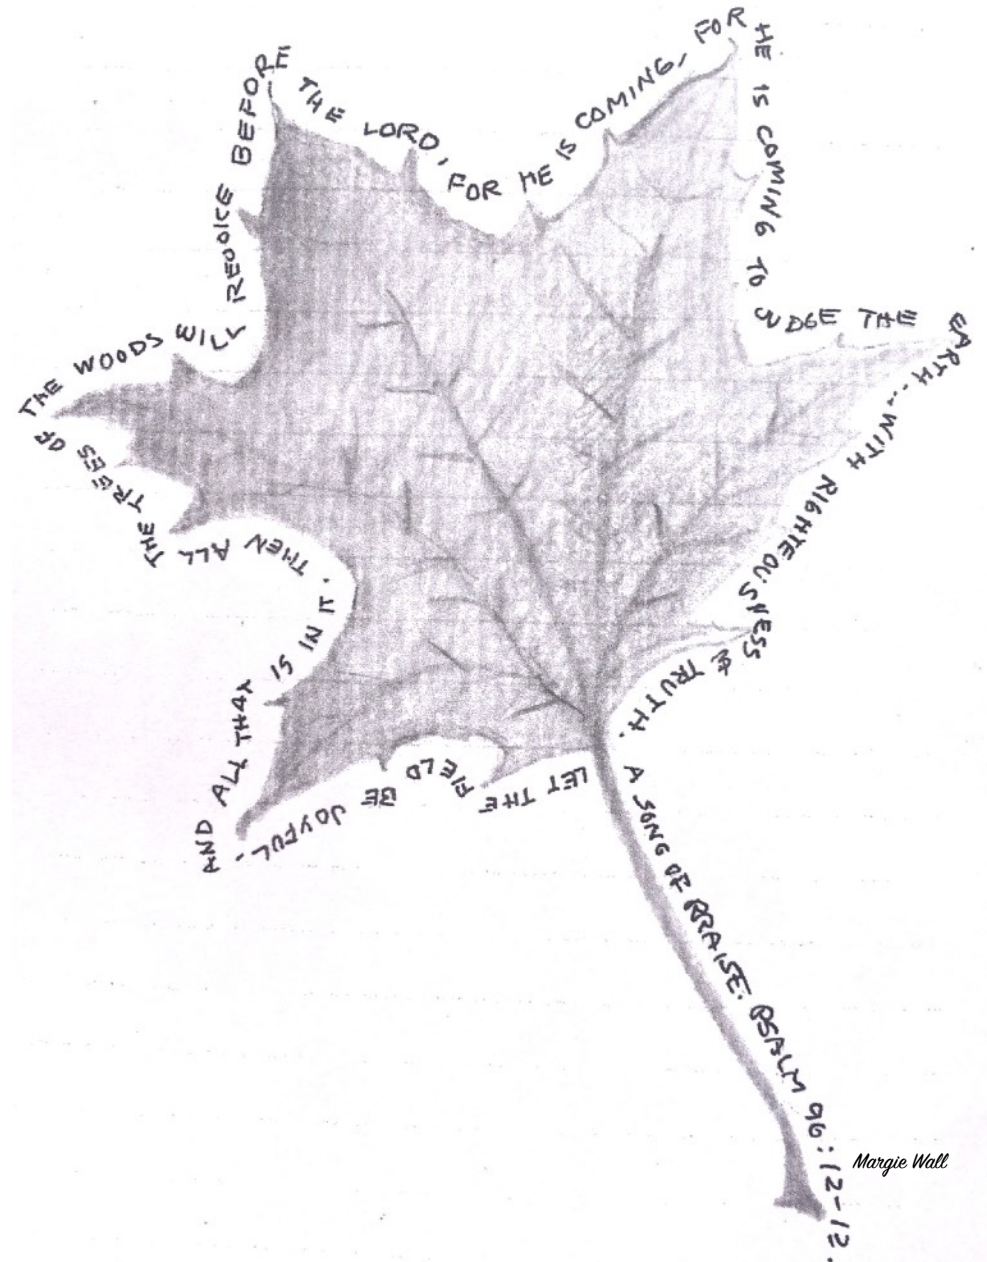 LET THE FIELD BE JOYFUL. AND ALL THAT IS IN IT. THEN ALL THE TREES OF THE WOODS WILL REJOICE BEFORE THE LORD, FOR HE IS COMING, FOR HE IS COMING TO JUDGE THE EARTH... WITH RIGHTEOUSNESS & TRUTH.
A SONG OF PRAISE: PSALM 96:12-12.
Margie Wall